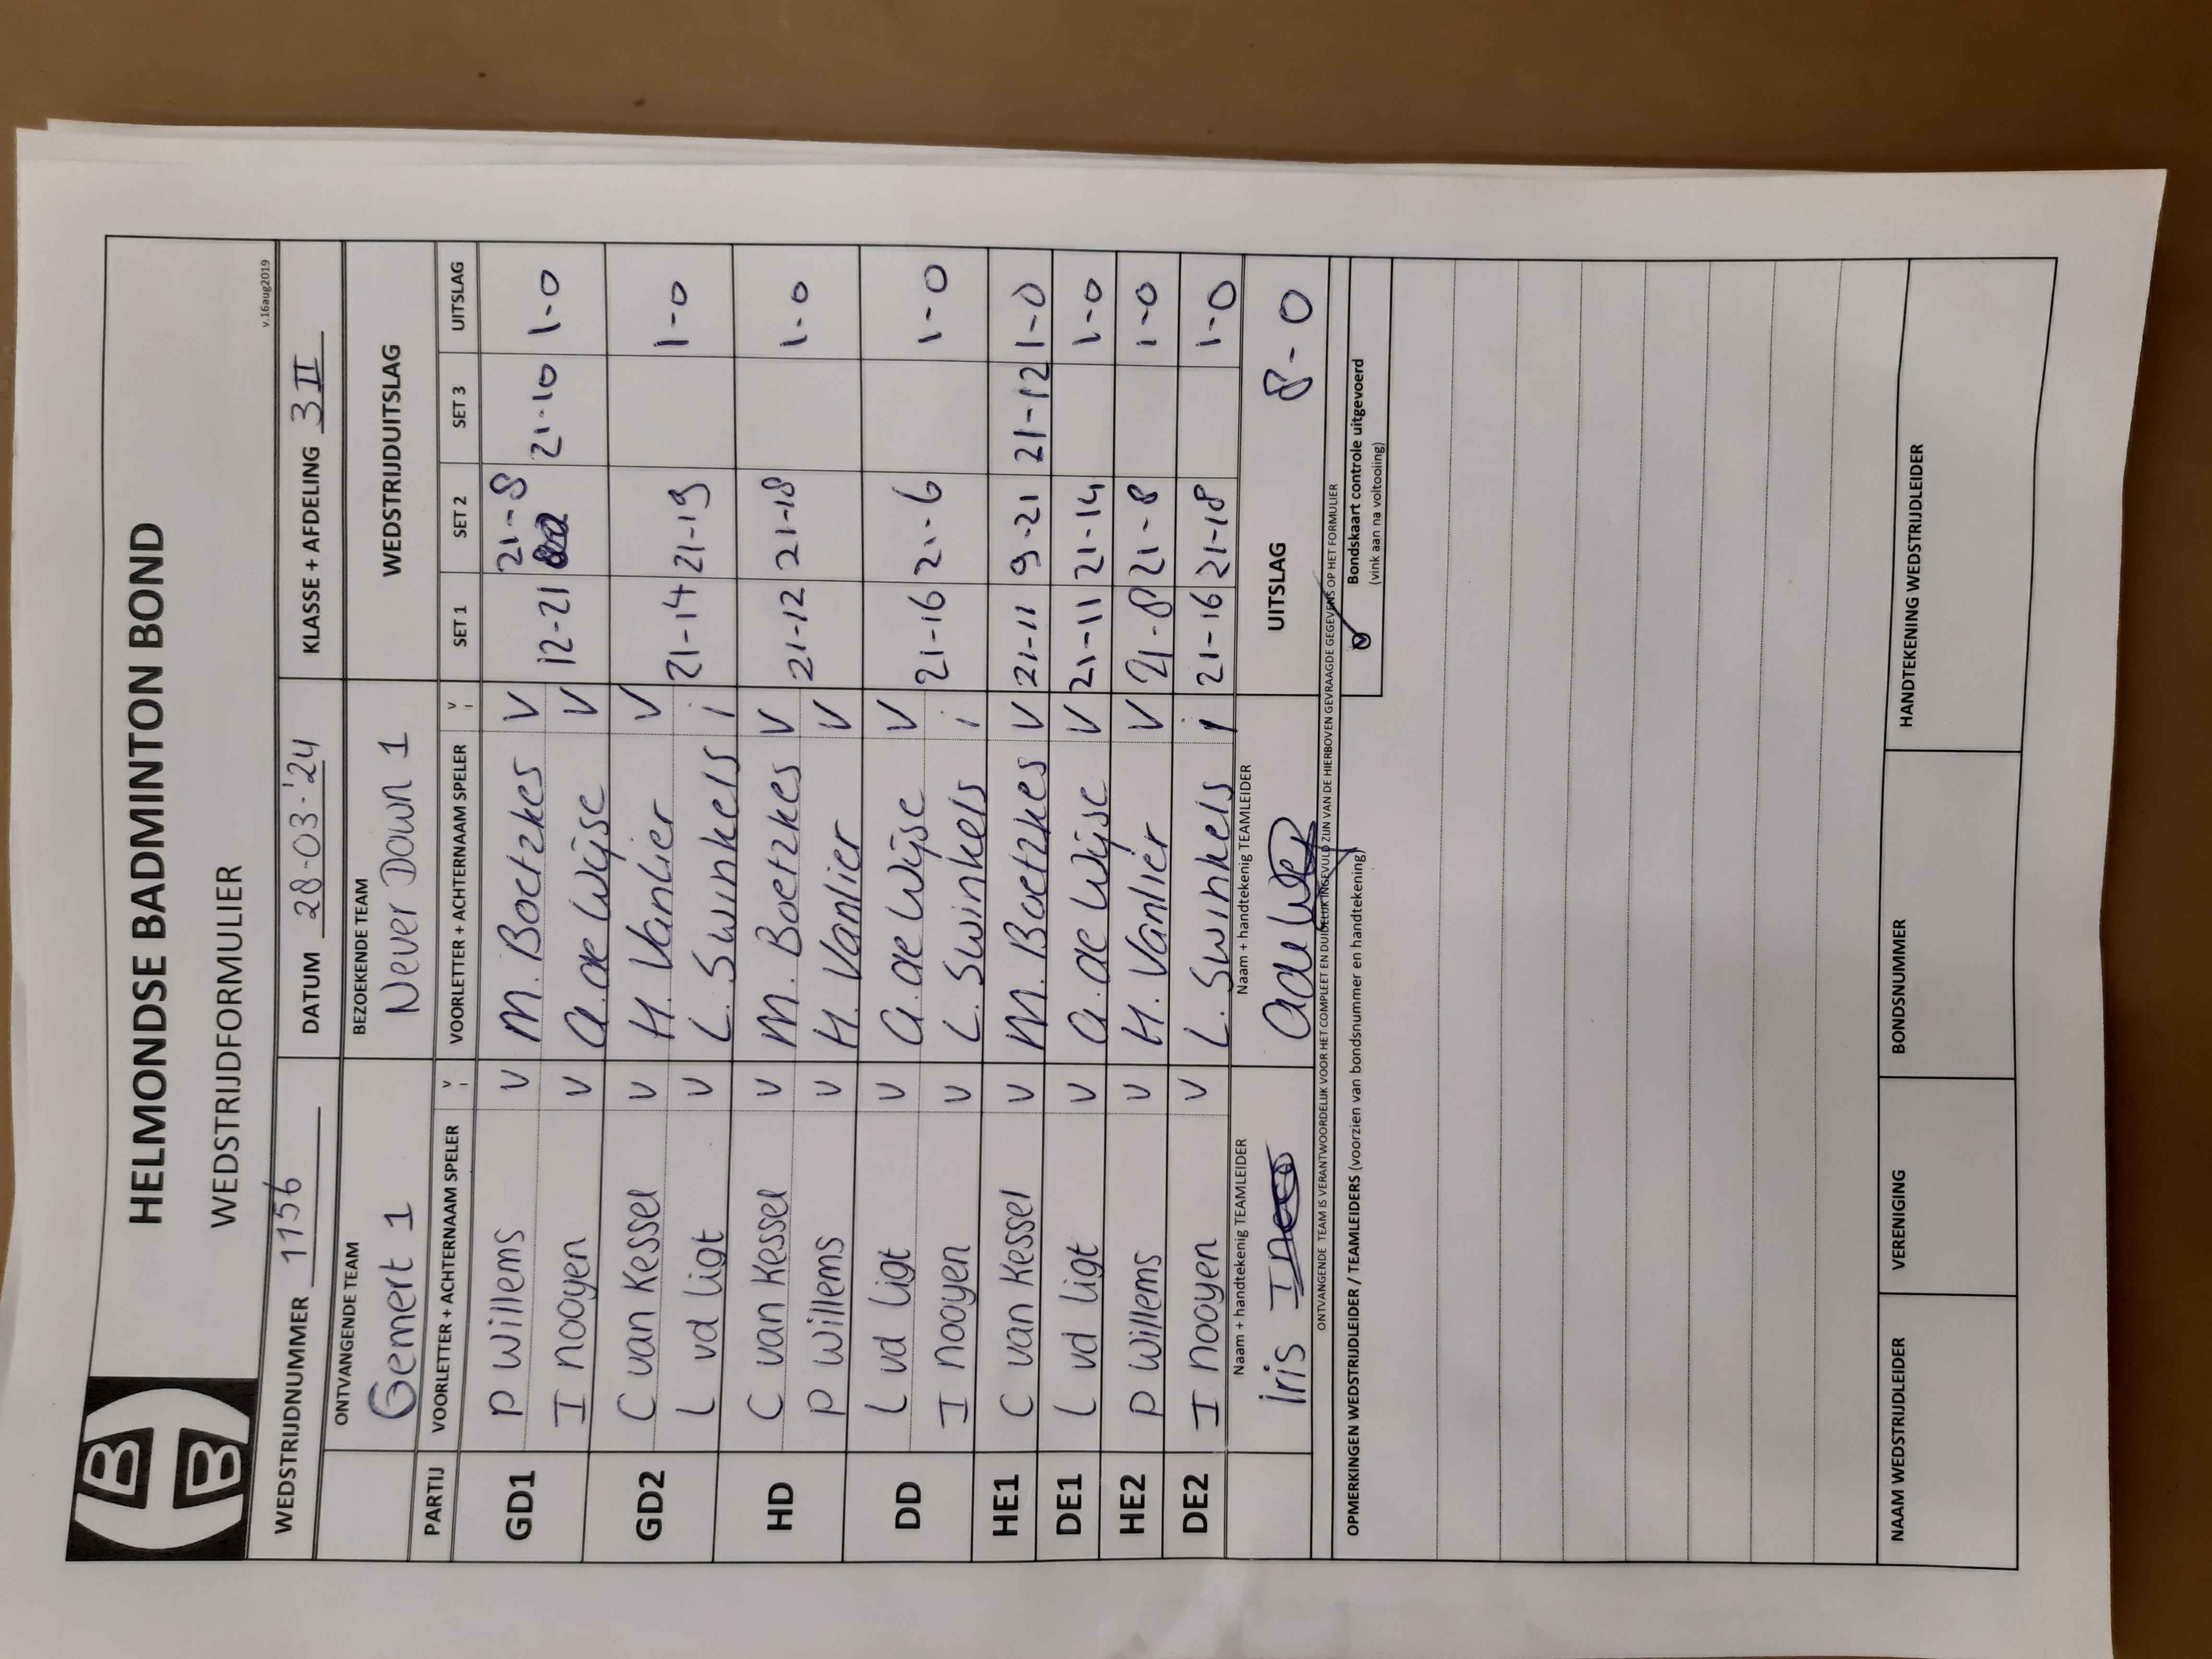 HELMONDSE BADMINTON BOND
WEDSTRIJDFORMULIER
v.16aug2019
WEDSTRIJDNUMMER 1156 DATUM 28-03-'24 KLASSE + AFDELING 3 II
ONTVANGENDE TEAM BEZOEKENDE TEAM WEDSTRIJDUITSLAG
Gemert 1 Never Down 1
PARTIJ VOORLETTER + ACHTERNAAM SPELER V I VOORLETTER + ACHTERNAAM SPELER V I SET 1 SET 2 SET 3 UITSLAG
GD1 P Willems V M. Boetzkes V 21-8
I nooyen V A. de Wijse V 12-21 21-10 1-0
GD2 C van Kessel V H. Vanlier V
L vd Ligt V L. Swinkels i 21-14 21-19 1-0
HD C van Kessel V M. Boetzkes V
P Willems V H. Vanlier V 21-12 21-18 1-0
DD L vd Ligt V A. de Wijse V
I nooyen V L. Swinkels i 21-16 21-6 1-0
HE1 C van Kessel V M. Boetzkes V 21-11 9-21 21-12 1-0
DE1 L vd Ligt V A. de Wijse V 21-11 21-14 1-0
HE2 P Willems V H. Vanlier V 21-8 21-8 1-0
DE2 I nooyen V L. Swinkels i 21-16 21-18 1-0
Naam + handtekenig TEAMLEIDER Naam + handtekenig TEAMLEIDER
Iris UITSLAG 8-0
ONTVANGENDE TEAM IS VERANTWOORDELIJK VOOR HET COMPLEET EN DUIDELIJK INGEVULD ZIJN VAN DE HIERBOVEN GEVRAAGDE GEGEVENS OP HET FORMULIER
OPMERKINGEN WEDSTRIJDLEIDER / TEAMLEIDERS (voorzien van bondsnummer en handtekening)
Bondskaart controle uitgevoerd
(vink aan na voltooiing)
NAAM WEDSTRIJDLEIDER VERENIGING BONDSNUMMER HANDTEKENING WEDSTRIJDLEIDER